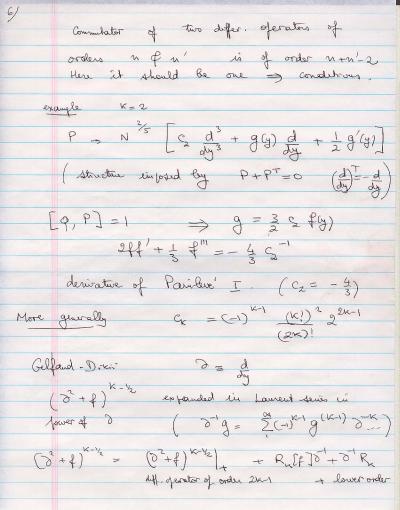 6)
Commutator of two differ. operators of
orders n & n' is of order n+n'-2
Here it should be one ⇒ conditions.
example K=2
P → N^{2/5} [ c_2 d^3/dy^3 + g(y) d/dy + 1/2 g'(y) ]
( structure imposed by P+P^T=0 (d/dy)^T = -d/dy )
[Q, P] = 1 ⇒ g = 3/2 c_2 f(y)
2ff' + 1/3 f''' = -4/3 c_2^{-1}
derivative of Painlevé I. (c_2 = -4/3)
More generally c_K = (-1)^{K-1} (K!)^2/(2K)! 2^{2K-1}
Gelfand-Dikii ∂ ≡ d/dy
(∂^2+f)^{K-1/2} expanded in Laurent series in
power of ∂ ( ∂^{-1} g = Σ^∞ (-1)^{K-1} g^{(K-1)} ∂^{-K} ...)
(∂^2+f)^{K-1/2} = (∂^2+f)^{K-1/2}|_+ + R_K[f]∂^{-1} + ∂^{-1}R_K
diff. operator of order 2K-1 + lower order